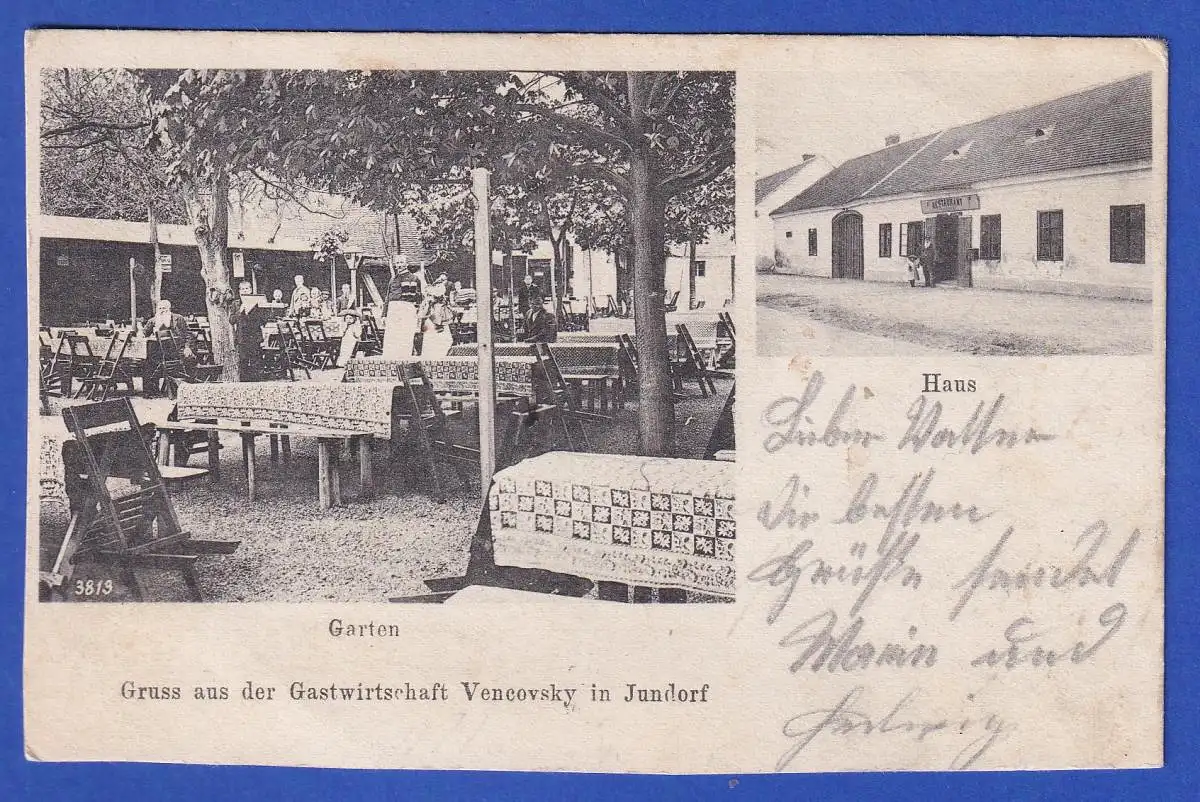 RESTAURANT
3819
Garten
Haus
Gruss aus der Gastwirtschaft Vencovsky in Jundorf
Lieber Walther
Die besten
Grüße sendet
Marie und
Hedwig